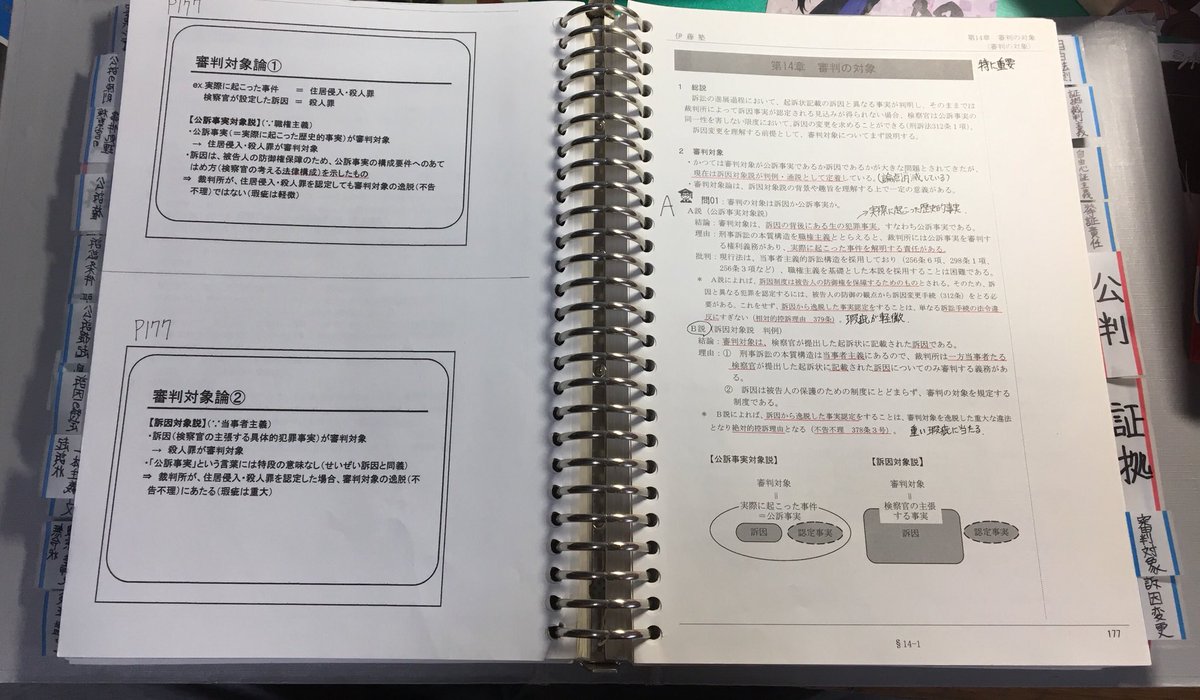 P177
審判対象論①
ex.実際に起こった事件 = 住居侵入・殺人罪
検察官が設定した訴因 = 殺人罪
【公訴事実対象説】(∵職権主義)
・公訴事実(=実際に起こった歴史的事実)が審判対象
→ 住居侵入・殺人罪が審判対象
・訴因は、被告人の防御権保障のため、公訴事実の構成要件へのあて
はめ方(検察官の考える法律構成)を示したもの
⇒ 裁判所が、住居侵入・殺人罪を認定しても審判対象の逸脱(不告
不理)ではない(瑕疵は軽微)
P177
審判対象論②
【訴因対象説】(∵当事者主義)
・訴因(検察官の主張する具体的犯罪事実)が審判対象
→ 殺人罪が審判対象
・「公訴事実」という言葉には特段の意味なし(せいぜい訴因と同義)
⇒ 裁判所が、住居侵入・殺人罪を認定した場合、審判対象の逸脱(不
告不理)にあたる(瑕疵は重大)
伊藤塾
第14章 審判の対象
(審判の対象)
第14章 審判の対象
特に重要
1 総説
訴訟の進展過程において、起訴状記載の訴因と異なる事実が判明し、そのままでは
裁判所によって訴因事実が認定される見込みが得られない場合、検察官は公訴事実の
同一性を害しない限度において、訴因の変更を求めることができる(刑訴法312条1項)。
訴因変更を理解する前提として、審判対象についてまず説明する。
2 審判対象
・かつては審判対象が公訴事実であるか訴因であるかが大きな問題とされてきたが、
現在は訴因対象説が判例・通説として定着している。(論点消滅している)
・審判対象論は、訴因対象説の背景や趣旨を理解する上で一定の意義がある。
A
問01:審判の対象は訴因か公訴事実か。
→実際に起こった歴史的事実
A説(公訴事実対象説)
結論:審判対象は、訴因の背後にある生の犯罪事実、すなわち公訴事実である。
理由:刑事訴訟の本質構造を職権主義ととらえると、裁判所には公訴事実を審判す
る権利義務があり、実際に起こった事件を解明する責任がある。
批判:現行法は、当事者主義的訴訟構造を採用しており(256条6項、298条1項、
256条3項など)、職権主義を基礎とした本説を採用することは困難である。
* A説によれば、訴因制度は被告人の防御権を保障するためのものとされる。そのため、訴
因と異なる犯罪を認定するには、被告人の防御の観点から訴因変更手続(312条)をとる必
要がある。これをせず、訴因から逸脱した事実認定をすることは、単なる訴訟手続の法令違
反にすぎない(相対的控訴理由 379条)。瑕疵が軽微
B説(訴因対象説 判例)
結論:審判対象は、検察官が提出した起訴状に記載された訴因である。
理由:① 刑事訴訟の本質構造は当事者主義にあるので、裁判所は一方当事者たる
検察官が提出した起訴状に記載された訴因についてのみ審判する義務があ
る。
② 訴因は被告人の保護のための制度にとどまらず、審判の対象を規定する
制度である。
* B説によれば、訴因から逸脱した事実認定をすることは、審判対象を逸脱した重大な違法
となり絶対的控訴理由となる(不告不理 378条3号)。重い瑕疵に当たる
【公訴事実対象説】
審判対象
=
実際に起こった事件
=公訴事実
訴因
認定事実
【訴因対象説】
審判対象
=
検察官の主張
する事実
訴因
認定事実
§14-1
177
公訴権
訴訟条件
自由心証主義
挙証責任
公判
証拠
審判対象
訴因変更